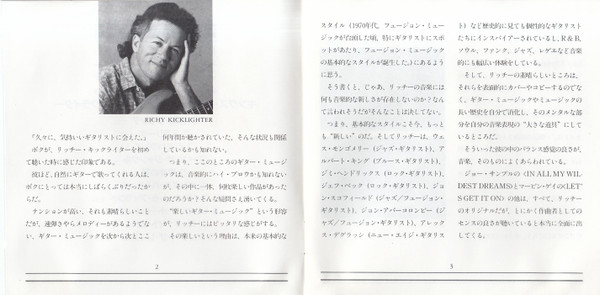 RICHY KICKLIGHTER
「久々に、気持いいギタリストに会えた。」
ボクが、リッチー・キックライターを初め
て聴いた時に感じた印象である。
彼ほど、自然にギターで歌ってくれる人は、
ボクにとっては本当にしばらくぶりだったか
らだ。
テンションが高い、それも素晴らしいこと
だが、速弾きやらメロディーがあるようでな
い、ギター・ミュージックを次から次とここ
何年間か聴かされていた。そんな状況も関係
しているかも知れない。
つまり、ここのところのギター・ミュージ
ックは、音楽的にハイ・ブロウかも知れない
が、その中に一体、何枚楽しい作品があった
のだろうか？そんな疑問さえ湧いてくる。
“楽しいギター・ミュージック”という形容
が、リッチーにはピッタリな感じがする。
その楽しいという理由は、本来の基本的な
2
スタイル（1970年代、フュージョン・ミュー
ジックが台頭した頃、特にギタリストにスポ
ットがあたり、フュージョン・ミュージック
の基本的なスタイルが誕生した。）にあるよう
に思う。
そう書くと、じゃあ、リッチーの音楽には
何も音楽的な新しさが存在しないのか？なん
て言われそうだがそんなことは決してない。
つまり、基本的なスタイルこそ今、もっと
も“新しい”のだ。そしてリッチーは、ウェ
ス・モンゴメリー（ジャズ・ギタリスト）、ア
ルバート・キング（ブルース・ギタリスト）、
ジミ・ヘンドリックス（ロック・ギタリスト）、
ジェフ・ベック（ロック・ギタリスト）、ジョ
ン・スコフィールド（ジャズ／フュージョン・
ギタリスト）、ジョン・アバークロンビー（ジ
ャズ／フュージョン・ギタリスト）、アレック
ス・デグラッシ（ニュー・エイジ・ギタリス
ト）など歴史的に見ても個性的なギタリスト
たちにインスパイアーされているし、R＆B、
ソウル、ファンク、ジャズ、レゲエなど音楽
的にも幅広い体験をしている。
そして、リッチーの素晴らしいところは、
それらを表面的にカバーやコピーするのでな
く、ギター・ミュージックやミュージックの
長い歴史を自分で消化し、そのメンタルな部
分を自分の音楽表現の“大きな道具”にして
いるところだ。
そういった彼の中のバランス感覚の良さが、
音楽、そのものによくあらわれている。
ジョー・サンプルの〈IN ALL MY WIL
DEST DREAMS〉とマービン・ゲイの〈LET'
S GET IT ON〉の他は、すべて、リッチー
のオリジナルだが、とにかく作曲者としての
センスの良さが聴いていると本当に全面に出
てくる。
3